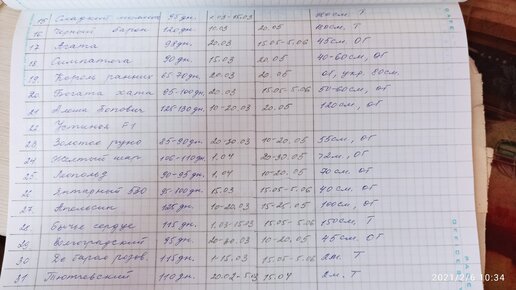 15 Сладкий 95дн. 1.03-15.03 150см. Т
16 Черный барон 120дн 10.03 20.05 150см. Т
17 Агата 98дн. 20.03 15.05-5.06 45см. ОГ
18 Симпатяга 90дн. 15.03 20.05 40-60см, ОГ
19 Король ранних 65-70дн. 20.03 20.05 ОГ, укр. 80см.
20 Богата хата 85-100дн. 20.03 15.05-5.06 50-60см, ОГ
21 Алеша Попович 125-130дн. 10-20.03 20.05 120см, ОГ
22 Устинья F1
23 Золотое руно 85-90дн. 20-30.03 10-20.05 55см, ОГ
24 Желтый шар 106-110дн. 1.04 20-30.05 ОГ
25 Леопольд 90-95дн. 1.04 10-20.05 70см, ОГ
26 Янтарный 530 95-100дн. 15.03 15.05-5.06 40см, ОГ
27. Апельсин 125дн. 10-20.03 15-25.05 100см, ОГ
28 Бычье сердце 115дн. 1.03-15.03 15.05-5.06 150см, Т
29 Волгоградский 95дн. 20-30.03 10-20.05 45см. ОГ
30 Де барао розов. 115дн. 1-15.03 15.05-5.06 2м. Т
31 Тютчевский 110дн. 20.02-5.03 15.04 2м. Т
2021/2/6 10:34